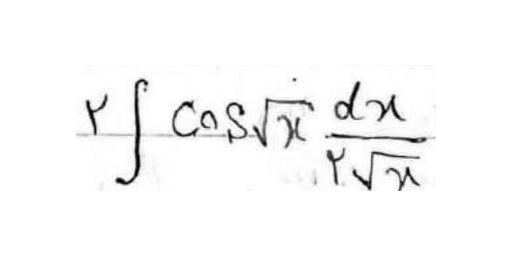 ۲∫ cos√x dx/۲√x